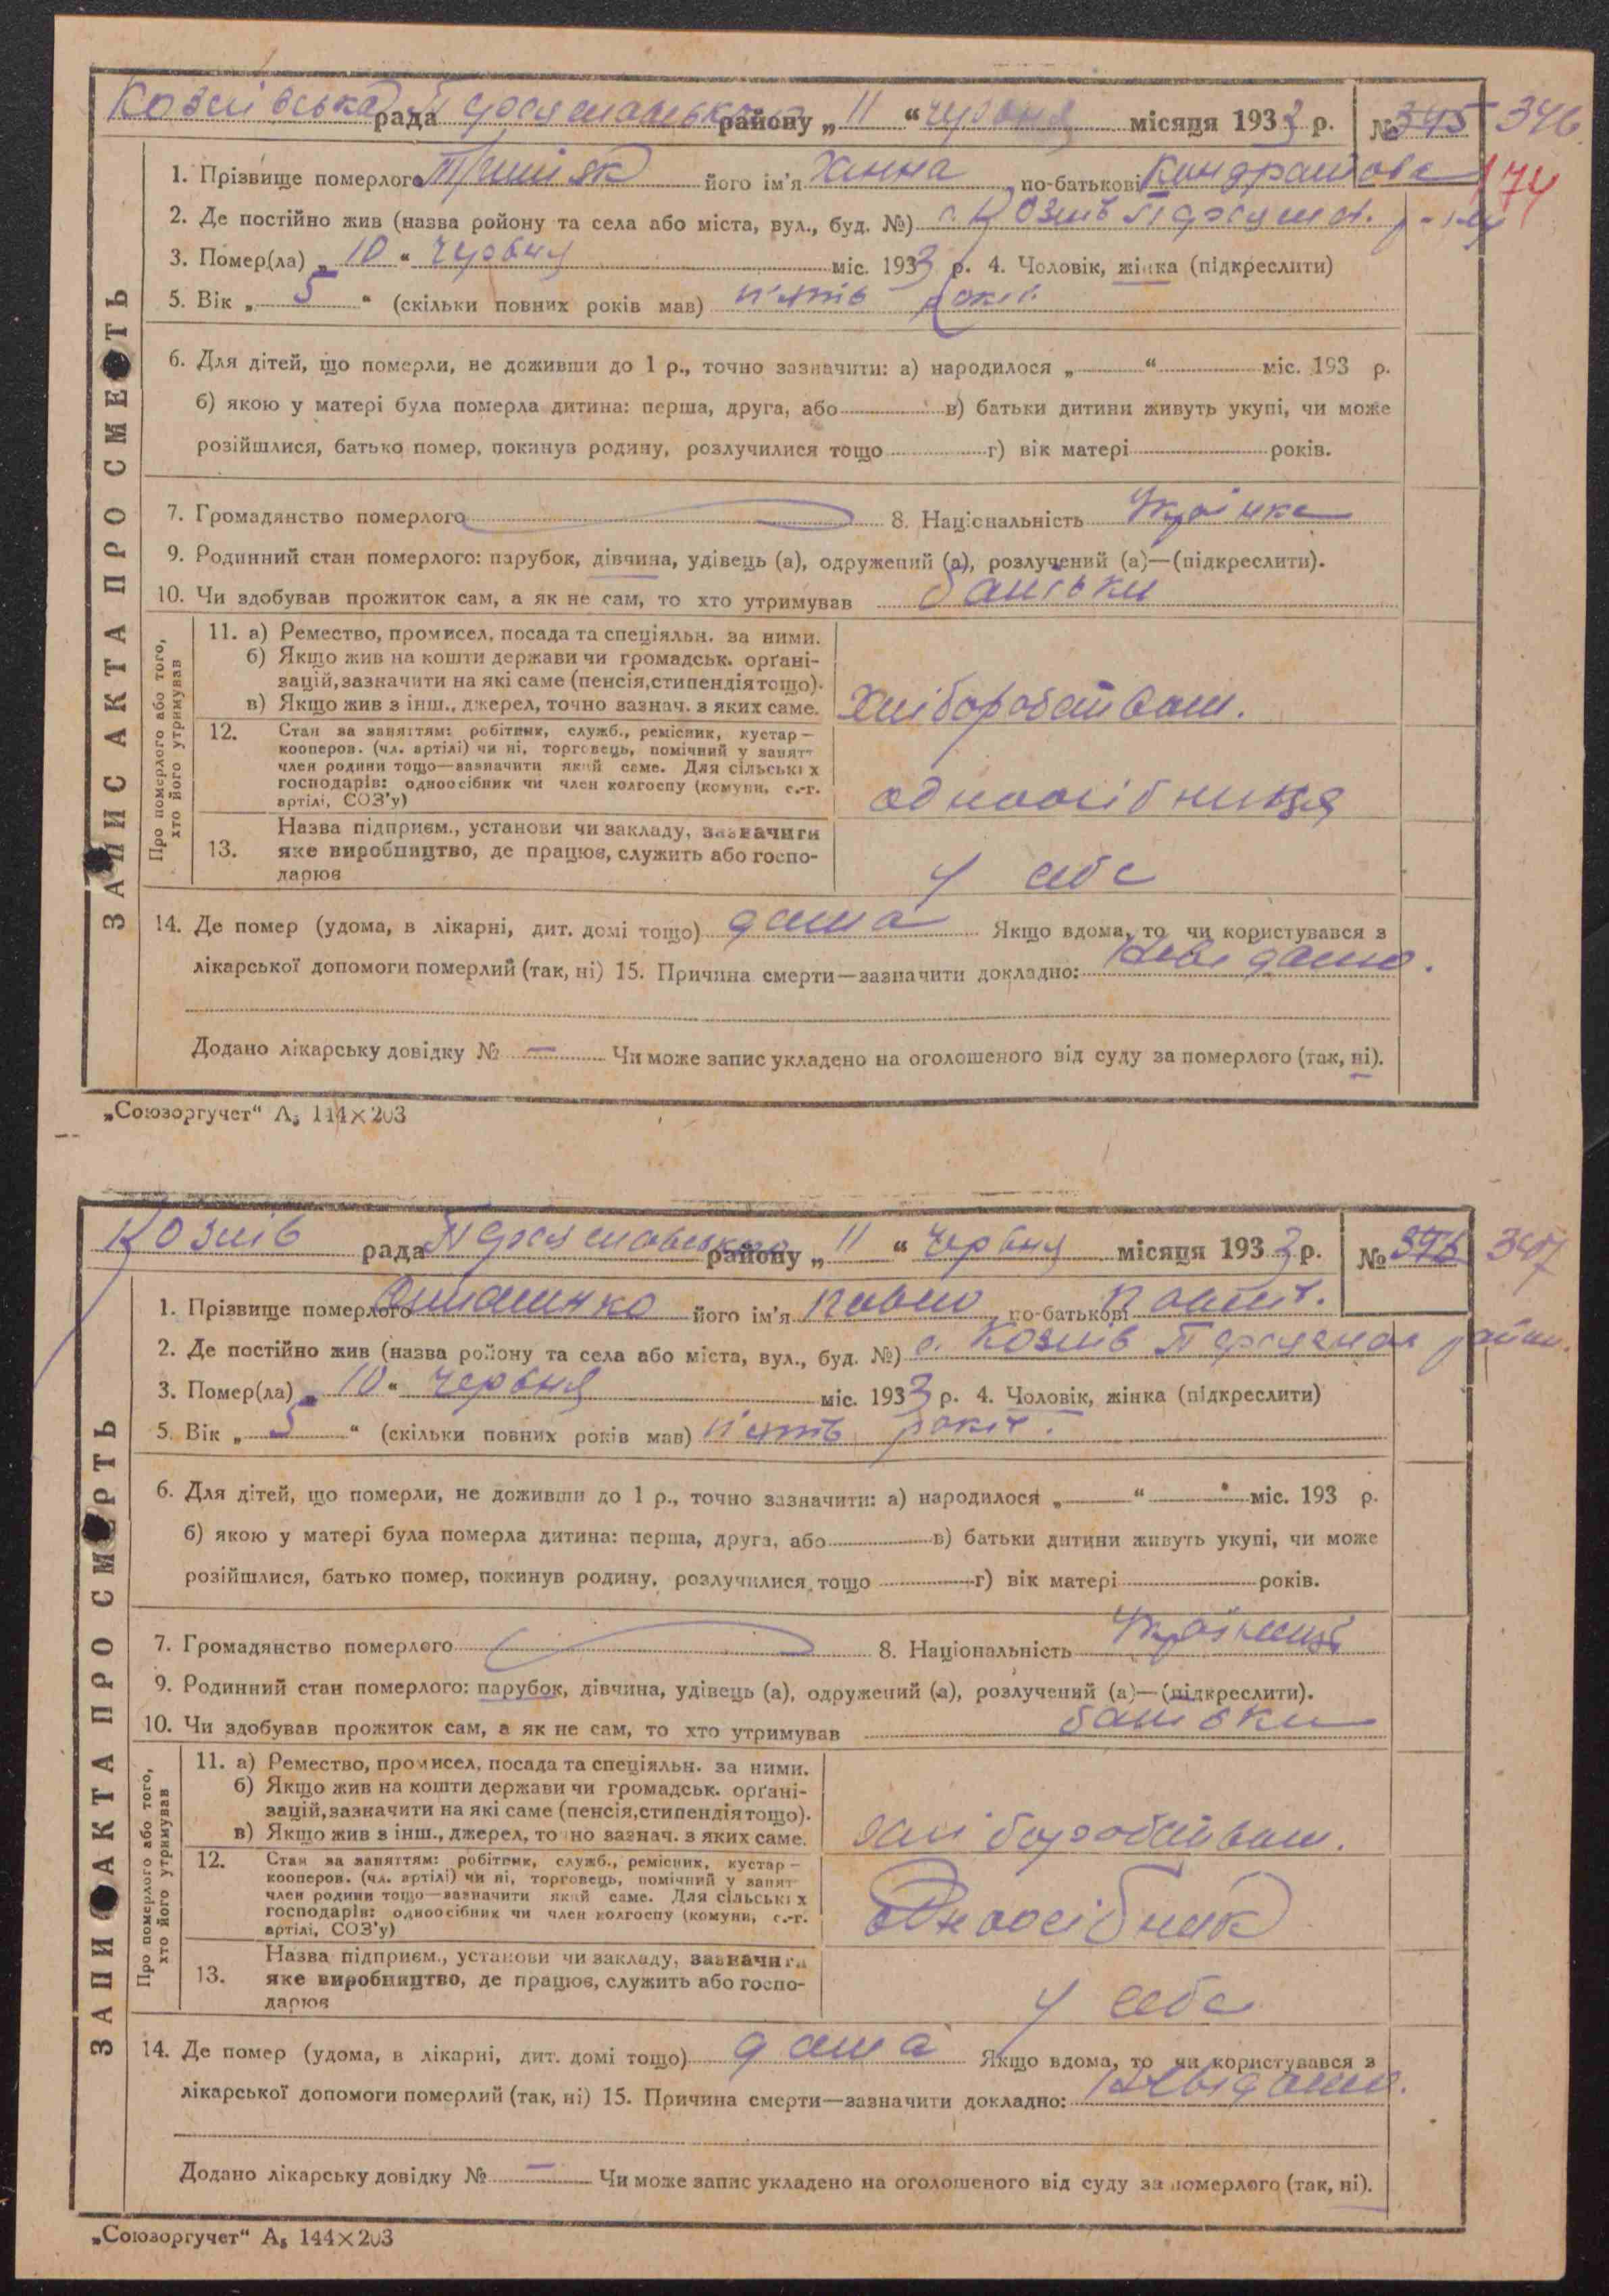 Козлівська рада району „11“ червня місяця 1933 р. № 345 346
1. Прізвище померлого його ім'я Ханна по-батькові 174
2. Де постійно жив (назва ройону та села або міста, вул., буд. №) с. Козлів р-ну
3. Помер(ла) „10“ червня міс. 1933 р. 4. Чоловік, жінка (підкреслити)
5. Вік „5“ (скільки повних років мав) п'ять років
6. Для дітей, що померли, не доживши до 1 р., точно зазначити: а) народилося „ “ міс. 193 р.
б) якою у матері була померла дитина: перша, друга, або в) батьки дитини живуть укупі, чи може
розійшлися, батько помер, покинув родину, розлучилися тощо г) вік матері років.
7. Громадянство померлого 8. Національність Українка
9. Родинний стан померлого: парубок, дівчина, удівець (а), одружений (а), розлучений (а)—(підкреслити).
10. Чи здобував прожиток сам, а як не сам, то хто утримував батьки
ЗАПИС АКТА ПРО СМЕРТЬ
Про померлого або того, хто його утримував
11. а) Ремество, промисел, посада та спеціяльн. за ними.
б) Якщо жив на кошти держави чи громадськ. орґані-
зацій, зазначити на які саме (пенсія, стипендія тощо).
в) Якщо жив з інш., джерел, точно зазнач. з яких саме.
12. Стан за заняттям: робітник, служб., ремісник, кустар—
кооперов. (чл. артілі) чи ні, торговець, помічний у занят
член родини тощо—зазначити який саме. Для сільських
господарів: одноосібник чи член колгоспу (комуни, с.-г.
артілі, СОЗ'у) одноосібниця
13. Назва підприєм., установи чи закладу, зазначити
яке виробництво, де працює, служить або госпо-
дарює у себе
14. Де помер (удома, в лікарні, дит. домі тощо) дома Якщо вдома, то чи користувався з
лікарської допомоги померлий (так, ні) 15. Причина смерти—зазначити докладно: Невідомо.
Додано лікарську довідку № — Чи може запис укладено на оголошеного від суду за померлого (так, ні).
„Союзоргучет“ А₅ 144×203
Козлів рада району „11“ червня місяця 1933 р. № 346 347
1. Прізвище померлого його ім'я Павло по-батькові
2. Де постійно жив (назва ройону та села або міста, вул., буд. №) с. Козлів район.
3. Помер(ла) „10“ червня міс. 1933 р. 4. Чоловік, жінка (підкреслити)
5. Вік „5“ (скільки повних років мав) п'ять років.
6. Для дітей, що померли, не доживши до 1 р., точно зазначити: а) народилося „ “ міс. 193 р.
б) якою у матері була померла дитина: перша, друга, або в) батьки дитини живуть укупі, чи може
розійшлися, батько помер, покинув родину, розлучилися тощо г) вік матері років.
7. Громадянство померлого 8. Національність Українець
9. Родинний стан померлого: парубок, дівчина, удівець (а), одружений (а), розлучений (а)—(підкреслити).
10. Чи здобував прожиток сам, а як не сам, то хто утримував батьки
ЗАПИС АКТА ПРО СМЕРТЬ
Про померлого або того, хто його утримував
11. а) Ремество, промисел, посада та спеціяльн. за ними.
б) Якщо жив на кошти держави чи громадськ. орґані-
зацій, зазначити на які саме (пенсія, стипендія тощо).
в) Якщо жив з інш., джерел, точно зазнач. з яких саме.
12. Стан за заняттям: робітник, служб., ремісник, кустар—
кооперов. (чл. артілі) чи ні, торговець, помічний у занят
член родини тощо—зазначити який саме. Для сільських
господарів: одноосібник чи член колгоспу (комуни, с.-г.
артілі, СОЗ'у) Одноосібник
13. Назва підприєм., установи чи закладу, зазначити
яке виробництво, де працює, служить або госпо-
дарює у себе
14. Де помер (удома, в лікарні, дит. домі тощо) дома Якщо вдома, то чи користувався з
лікарської допомоги померлий (так, ні) 15. Причина смерти—зазначити докладно: Невідомо.
Додано лікарську довідку № — Чи може запис укладено на оголошеного від суду за померлого (так, ні).
„Союзоргучет“ А₅ 144×203